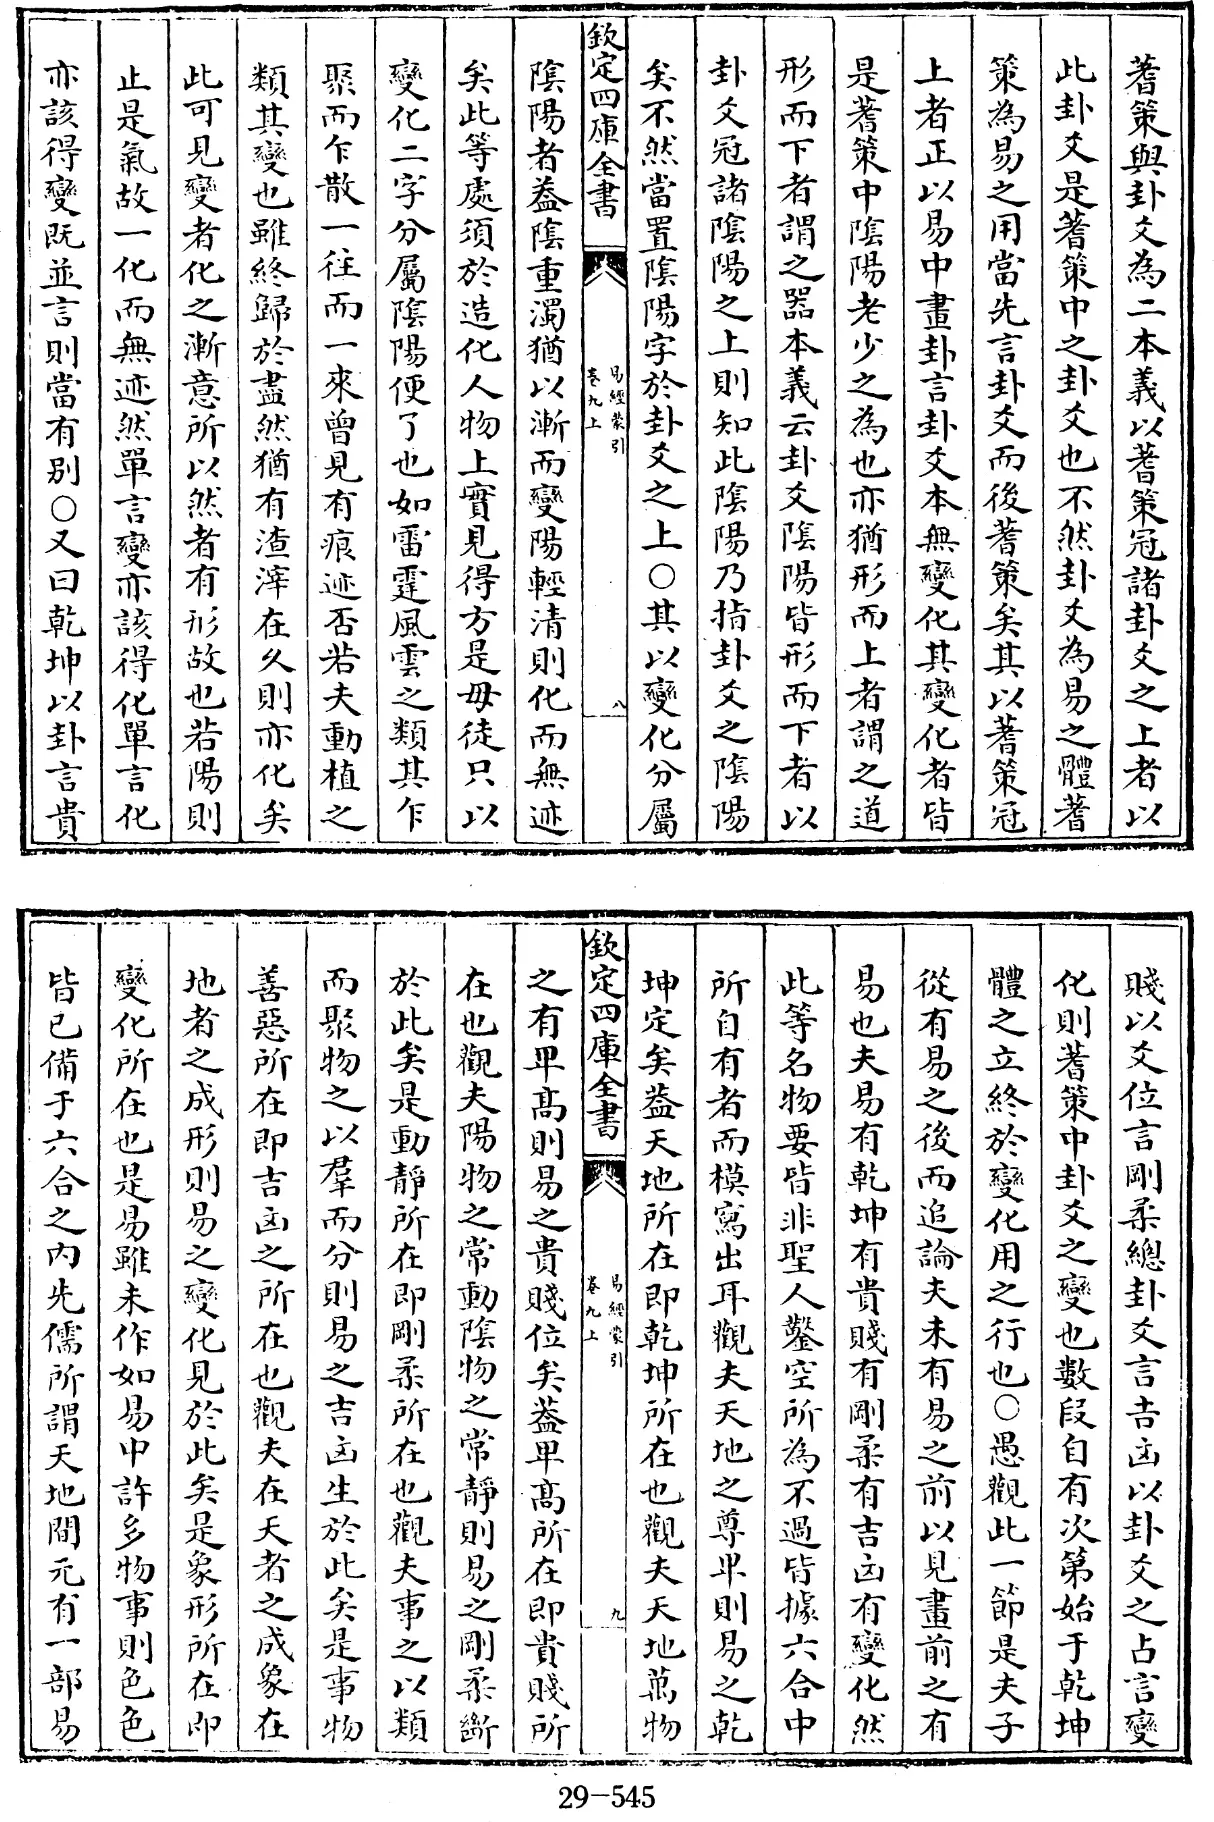 蓍策與卦爻為二本義以蓍策冠諸卦爻之上者以
此卦爻是蓍策中之卦爻也不然卦爻為易之體蓍
策為易之用當先言卦爻而後蓍策矣其以蓍策冠
上者正以易中畫卦言卦爻本無變化其變化者皆
是蓍策中隂陽老少之為也亦猶形而上者謂之道
形而下者謂之器本義云卦爻隂陽皆形而下者以
卦爻冠諸隂陽之上則知此隂陽乃指卦爻之隂陽
矣不然當置隂陽字於卦爻之上○其以變化分屬
欽定四庫全書
易經蒙引
卷九上
八
隂陽者葢隂重濁猶以漸而變陽輕清則化而無迹
矣此等處須於造化人物上實見得方是毋徒只以
變化二字分屬隂陽便了也如雷霆風雲之類其乍
聚而乍散一往而一來曾見有痕迹否若夫動植之
類其變也雖終歸於盡然猶有渣滓在久則亦化矣
此可見變者化之漸意所以然者有形故也若陽則
止是氣故一化而無迹然單言變亦該得化單言化
亦該得變既並言則當有别○又曰乾坤以卦言貴
賤以爻位言剛柔總卦爻言吉凶以卦爻之占言變
化則蓍策中卦爻之變也數段自有次第始于乾坤
體之立終於變化用之行也○愚觀此一節是夫子
從有易之後而追論夫未有易之前以見畫前之有
易也夫易有乾坤有貴賤有剛柔有吉凶有變化然
此等名物要皆非聖人鑿空所為不過皆據六合中
所自有者而模寫出耳觀夫天地之尊卑則易之乾
坤定矣葢天地所在即乾坤所在也觀夫天地萬物
欽定四庫全書
易經蒙引
卷九上
九
之有卑髙則易之貴賤位矣葢卑髙所在即貴賤所
在也觀夫陽物之常動隂物之常靜則易之剛柔斷
於此矣是動靜所在即剛柔所在也觀夫事之以類
而聚物之以羣而分則易之吉凶生於此矣是事物
善惡所在即吉凶之所在也觀夫在天者之成象在
地者之成形則易之變化見於此矣是象形所在即
變化所在也是易雖未作如易中許多物事則色色
皆已備于六合之内先儒所謂天地間元有一部易
29-545